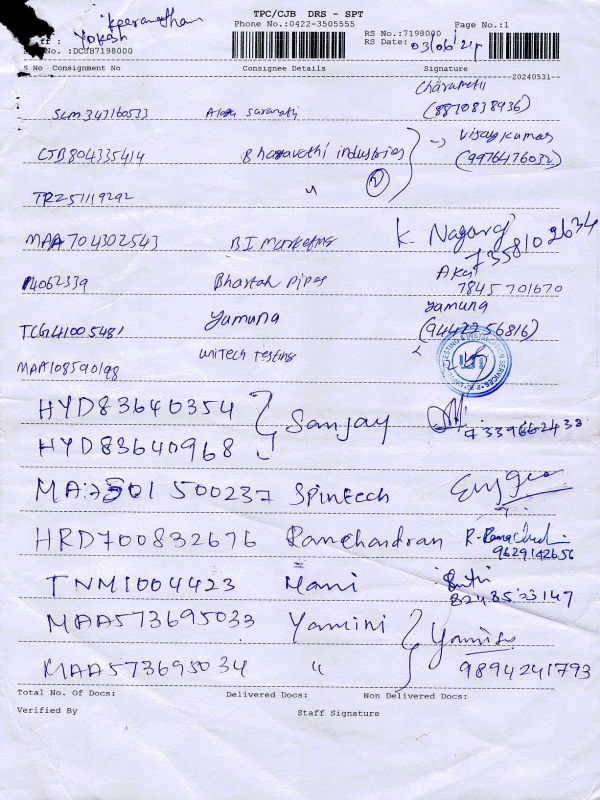 TPC/CJB DRS - SPT
Keeranatham
Phone No.:0422-3505555 Page No.:1
: Yokesh RS No.:7198000
No. :DCJB7198000 RS Date: 03/06/24
S No Consignment No Consignee Details Signature
20240531--
SLM347160533 saranathi (8870838936)
CJB804335414 Bhagavathi industries → Vijaykumar (9976476032)
TRZ51119292 〃 (2)
MAA704302543 BI Marketing K Nagaraj 7358102634
14062339 Bhartah pipes 7845701670
TCG41005481 Yamuna Yamuna (9442256816)
MAA108590198 Unitech Testing
HYD83640354 Sanjay 7339662438
HYD83640968
500237 Spintech
HRD700832676 Ramchandran R-Ramachandran 9629142656
TNM1004423 Mani 8248523147
MAA573695033 Yamini Yamini
MAA573695034 〃 9894241793
Total No. Of Docs: Delivered Docs: Non Delivered Docs:
Verified By Staff Signature